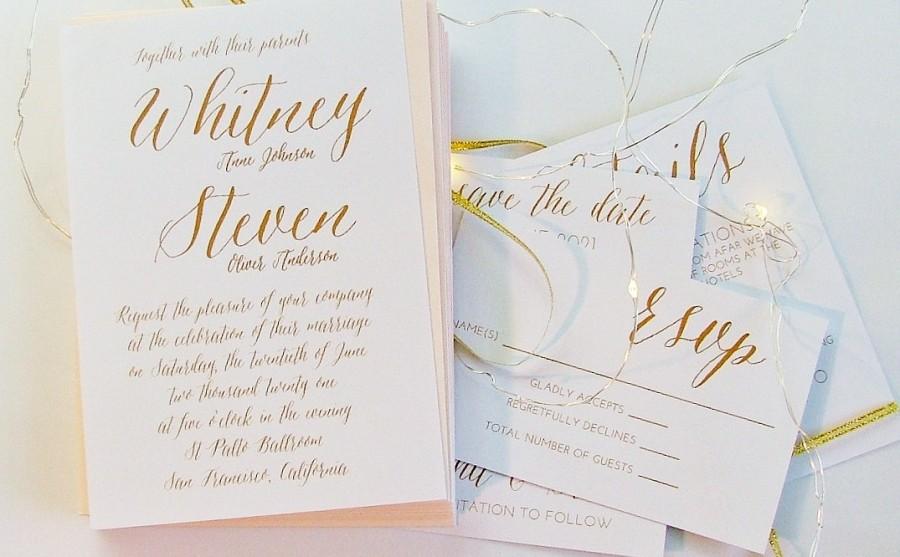 Together with their parents
Whitney
Anne Johnson
Steven
Oliver Anderson
Request the pleasure of your company
at the celebration of their marriage
on Saturday, the twentieth of June
two thousand twenty one
at five o'clock in the evening
St Pablo Ballroom
San Francisco, California
save the date
2021
rsvp
NAME(S)
GLADLY ACCEPTS
REGRETFULLY DECLINES
TOTAL NUMBER OF GUESTS
ATIONS
OM AFAR WE HAVE
F ROOMS AT THE
HOTELS
ITATION TO FOLLOW